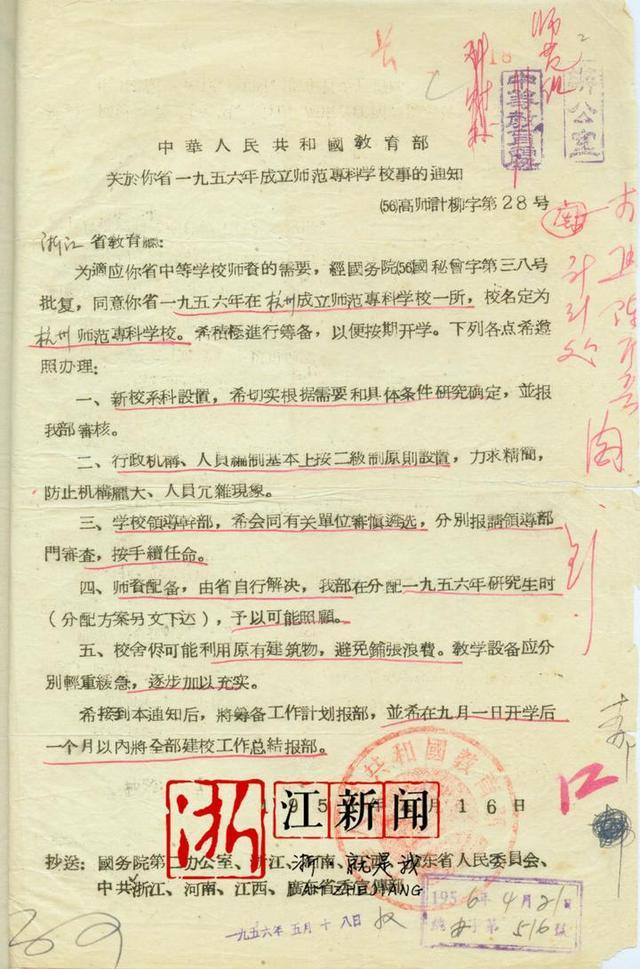 18
师范
中等教育科
办公室
中華人民共和國教育部
关於你省一九五六年成立师范專科学校事的通知
(56)高师計柳字第28号
浙江省教育廳:
为適应你省中等学校师資的需要，經國务院(56)國秘曾字第三八号
批复，同意你省一九五六年在杭州成立师范專科学校一所，校名定为
杭州师范專科学校。希積極進行籌备，以便按期开学。下列各点希遵
照办理:
一、新校系科設置，希切实根据需要和具体条件研究确定，並报
我部審核。
二、行政机構、人員編制基本上按二級制原則設置，力求精簡，
防止机構龐大、人員冗雜現象。
三、学校領導幹部，希会同有关單位審慎遴选，分别报請領導部
門審查，按手續任命。
四、师資配备，由省自行解决，我部在分配一九五六年研究生时
(分配方案另文下达)，予以可能照顧。
五、校舍尽可能利用原有建筑物，避免鋪張浪費。教学設备应分
别輕重緩急，逐步加以充实。
希接到本通知后，將籌备工作計划报部，並希在九月一日开学后
一个月以內將全部建校工作总结报部。
共和國教育
月16日
浙江新闻
浙 就是我
AH ZHEJIANG
抄送：國务院第二办公室、浙江、河南、江西、廣东省人民委員会、
中共浙江、河南、江西、廣东省委宣傳部
1956年4月21日
字第516號
一九五六年五月十八日